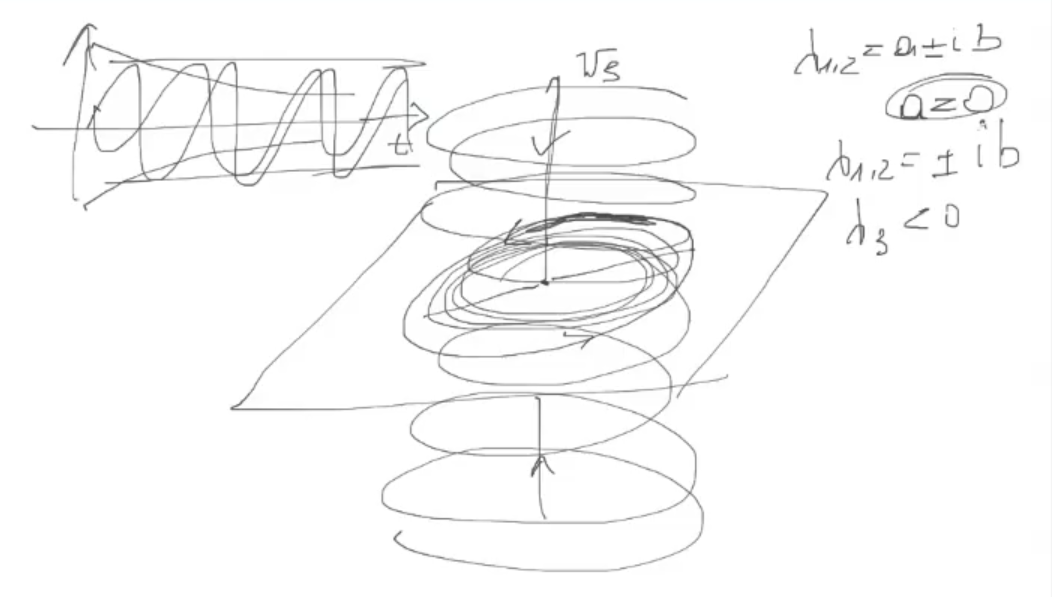 t
V₃
λ₁,₂ = a ± i b
a = 0
λ₁,₂ = ± i b
λ₃ < 0